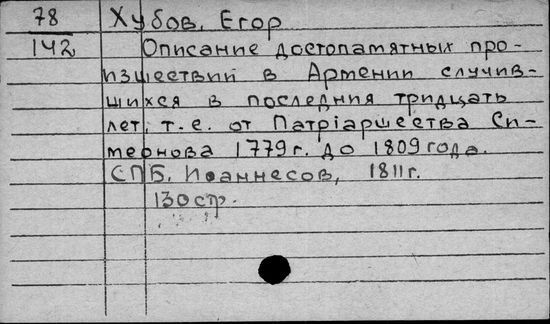 78 Хубов, Егор
142 Описание достопамятных про-
изшествий в Армении случив-
шихся в последния тридцать
лет, т.-е. от Патрiаршества Си-
меонова 1779 г. до 1809 года.
СПБ, Иоаннесов, 1811 г.
130 стр.